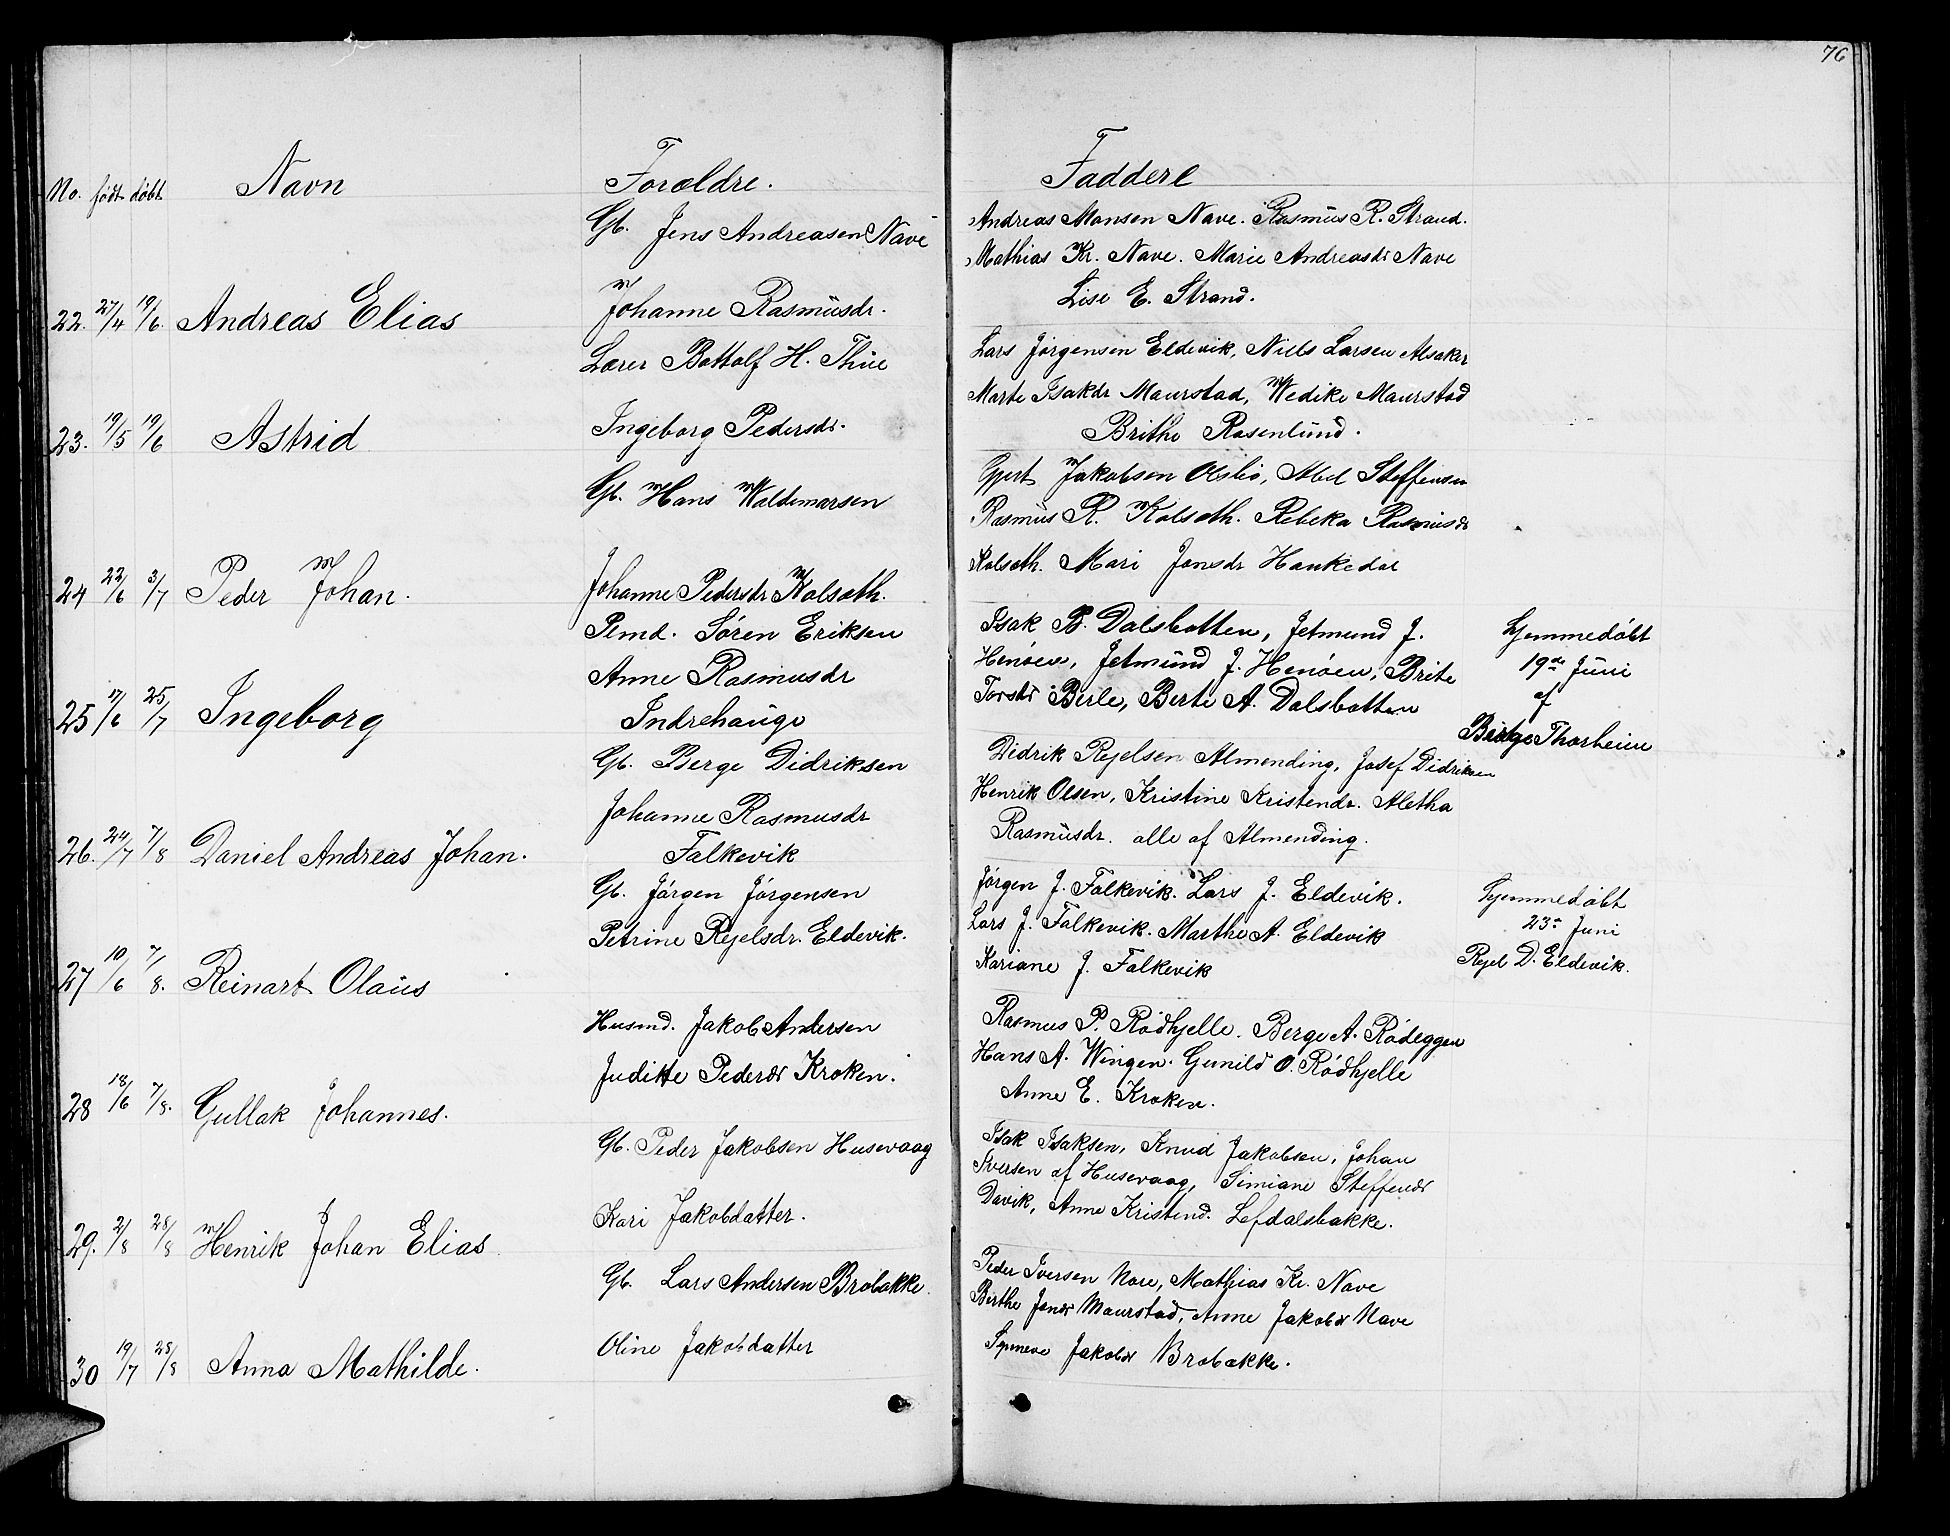 76
No. født døbt Navn Forældre. Faddere
Gb. Jens Andreasen Nave
Andreas Monsen Nave. Rasmus R. Strand.
Mathias Kr. Nave. Marie Andreasdr Nave
22. 27/4 19/6. Andreas Elias
Johanne Rasmusdr.
Lise E. Strand.
Lærer Bottolf H. Thue
Lars Jørgensen Eldevik, Niels Larsen Alsaker
Marte Isakdr Maurstad, Wedike Maurstad
23. 19/5 19/6 Astrid
Ingeborg Pedersdr.
Brithe Rosenlund.
Gb. Hans Waldemarsen
Gjert Jakobsen Olsbø, Abel Steffensen
Rasmus R. Kolseth. Rebeka Rasmusdr
24 22/6 3/7 Peder Johan.
Johanne Pedersdr Kolseth.
Kolseth. Mari Jonsdr Hankedal
Plmd. Søren Eriksen
Isak B. Dalsbotten, Jetmund J.
Hjemmedøbt
Anne Rasmusdr
Henøen, Jetmund J. Henøen, Brite
19de Juni
af
25 17/6 25/7 Ingeborg
Indrehauge
Torsdr Berle, Berte A. Dalsbotten
Birtge Thorheim
Gb. Berge Didriksen
Didrik Rejelsen Almending, Josef Didriksen
Johanne Rasmusdr
Henrik Olsen, Kristine Kristendr. Aletha
26. 24/7 7/8 Daniel Andreas Johan.
Falkevik
Rasmusdr. alle af Almending.
Gb. Jørgen Jørgensen
Jørgen J. Falkevik. Lars J. Eldevik.
Hjemmedøbt
Petrine Rejelsdr. Eldevik.
Lars J. Falkevik. Marthe A. Eldevik
23de Juni
27 10/6 7/8. Reinart Olaus
Kariane J. Falkevik
Rejel D. Eldevik.
Husmd. Jakob Andersen
Rasmus P. Rødhjelle. Berge A. Rødeggen
Juditte Pedersdr Kroken.
Hans A. Wingen. Gunild O. Rødhjelle
28 18/6 7/8. Gullak Johannes.
Anne E. Kroken.
Gb. Peder Jakobsen Husevaag
Isak Isaksen, Knud Jakobsen, Johan
Iversen af Husevaag, Simiane Steffensdr
29. 2/8 28/8 Henrik Johan Elias
Kari Jakobdatter.
Davik, Anne Kristend. Lefdalsbakke.
Gb. Lars Andersen Brobakke.
Peder Iversen Nore, Mathias Kr. Nave
Berthe Jensdr Maurstad, Anne Jakobdr Nave
30 19/7 28/8 Anna Mathilde.
Oline Jakobdatter
Synneve Jakobdr Brobakke.